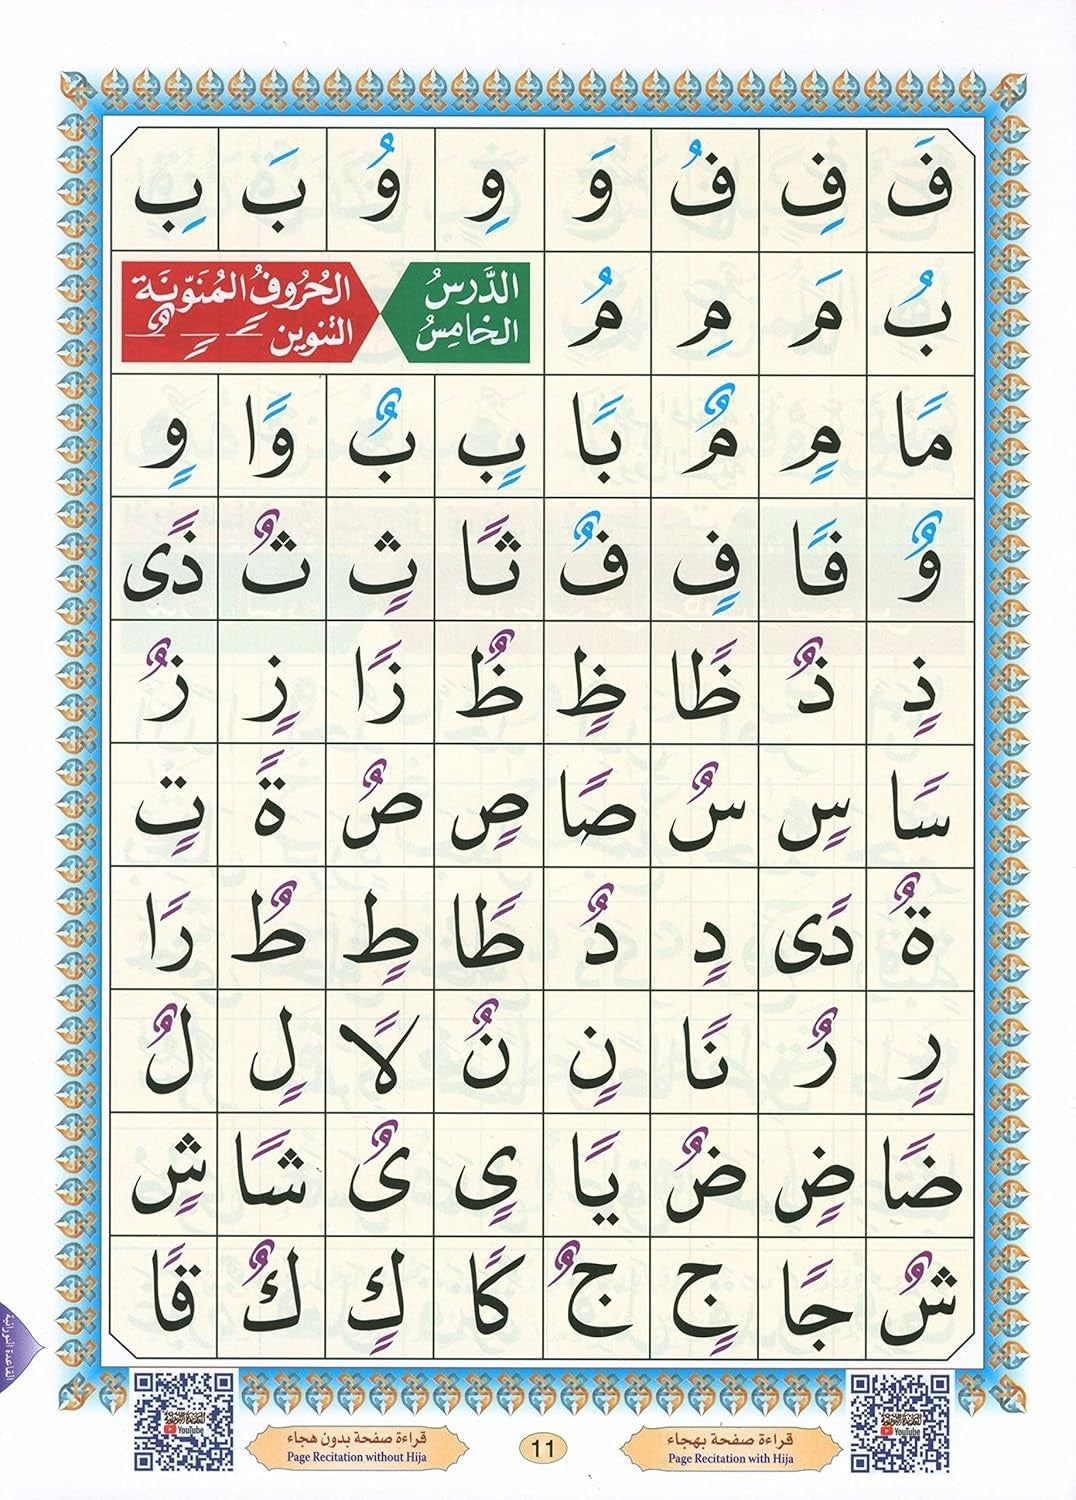 فَ فِ فُ وَ وِ وُ بَ بِ
بُ مَ مِ مُ
الدَّرسُ الخامِسُ
الحُرُوفُ المُنَوَّنَة
التنوين ـًـ ـٍـ ـٌـ
مًا مٍ مٌ بًا بٍ بٌ وًا وٍ
وٌ فًا فٍ فٌ ثًا ثٍ ثٌ ذًى
ذٍ ذٌ ظًا ظٍ ظٌ زًا زٍ زٌ
سًا سٍ سٌ صًا صٍ صٌ ةً تٍ
ةٌ دًى دٍ دٌ طًا طٍ طٌ رًا
رٍ رٌ نًا نٍ نٌ لًا لٍ لٌ
ضًا ضٍ ضٌ يًا ىٍ ىٌ شًا شٍ
شٌ جًا جٍ جٌ كًا كٍ كٌ قًا
القاعدة النورانية
YouTube
YouTube
قراءة صفحة بهجاء
Page Recitation with Hija
11
قراءة صفحة بدون هجاء
Page Recitation without Hija